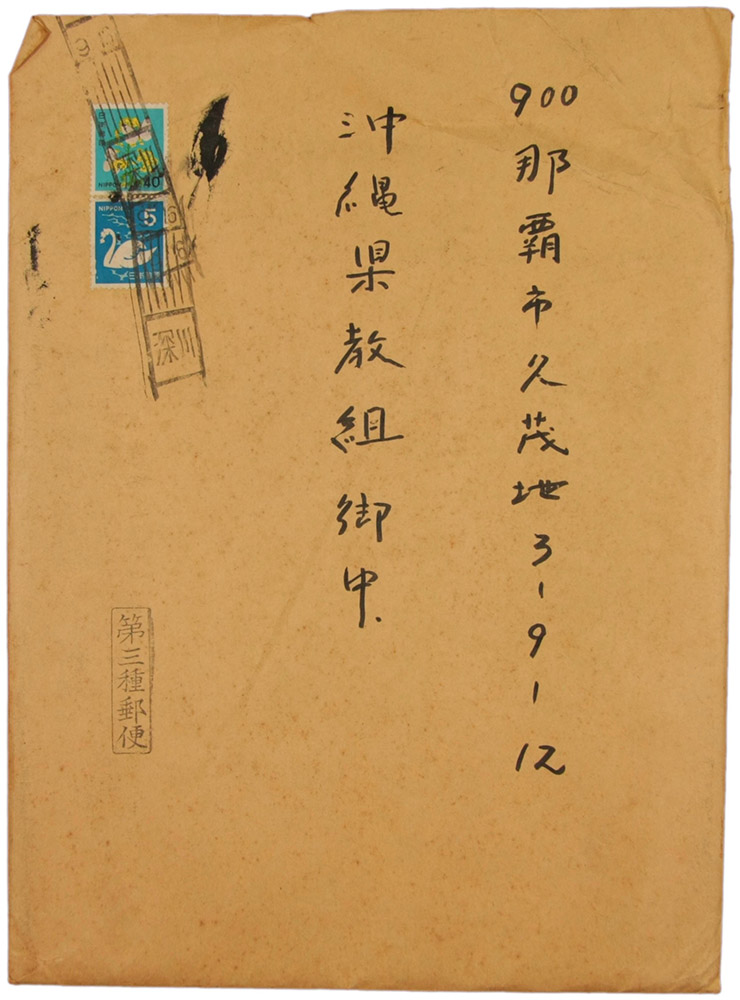 900
那覇市久茂地3-9-12
沖縄県教組御中.
日本郵便
NIPPON
40
NIPPON
5
日本郵便
深川
第三種郵便